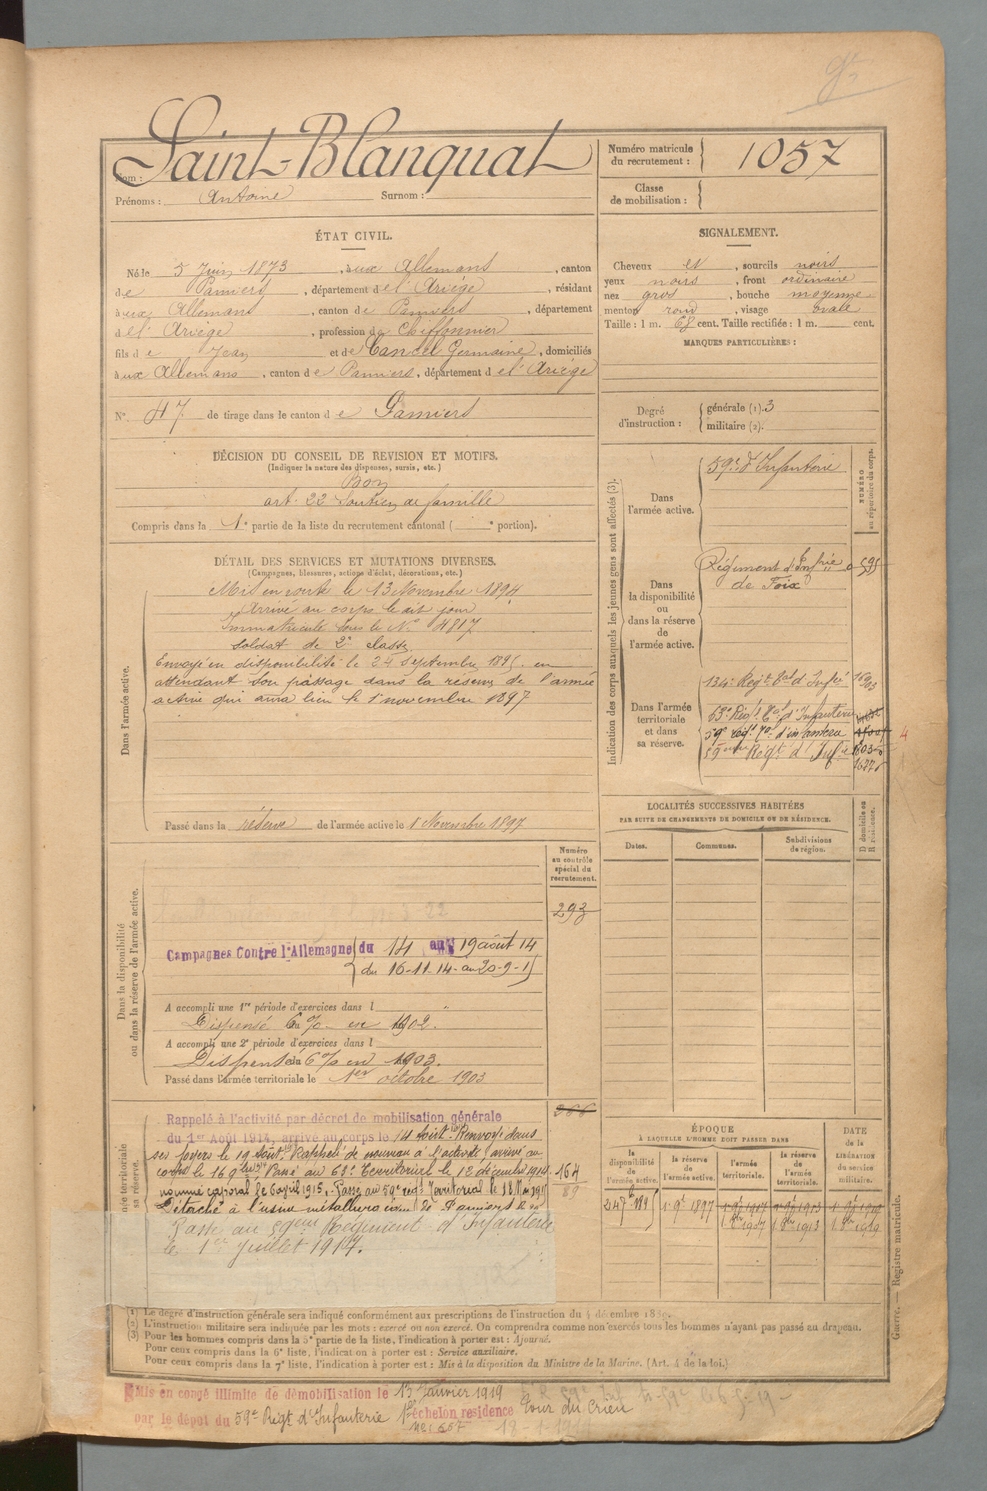 Nom : Saint-Blanquat
Prénoms : Antoine Surnom :
Numéro matricule du recrutement : 1057
Classe de mobilisation :
ÉTAT CIVIL.
Né le 5 Juin 1873, à aux Allemans, canton
de Pamiers, département de l'Ariège, résidant
à aux Allemans, canton de Pamiers, département
d el' Ariège, profession de Chiffonnier
fils de Jean et de Cancel Germaine, domiciliés
à aux Allemans, canton de Pamiers, département d el' Ariège
N° 47 de tirage dans le canton de Pamiers
SIGNALEMENT.
Cheveux et, sourcils noirs
yeux noirs, front ordinaire
nez gros, bouche moyenne
menton rond, visage ovale
Taille : 1 m. 68 cent. Taille rectifiée : 1 m. cent.
MARQUES PARTICULIÈRES :
Degré d'instruction : générale (1). 3
militaire (2).
DÉCISION DU CONSEIL DE REVISION ET MOTIFS.
(Indiquer la nature des dispenses, sursis, etc.)
Bon
art. 22 Soutien de famille
Compris dans la 1e partie de la liste du recrutement cantonal ( e portion).
DÉTAIL DES SERVICES ET MUTATIONS DIVERSES.
(Campagnes, blessures, actions d'éclat, décorations, etc.)
Dans l'armée active.
Mis en route le 13 Novembre 1894
Arrivé au corps le dit jour
Immatriculé sous le N° 4817
Soldat de 2e classe
Envoyé en disponibilité le 24 Septembre 1895 en
attendant son passage dans la réserve de l'armée
active qui aura lieu le 1 novembre 1897
Passé dans la réserve de l'armée active le 1 Novembre 1897
Indication des corps auxquels les jeunes gens sont affectés (3).
NUMÉRO au répertoire du corps.
Dans l'armée active.
59e d'Infanterie
Dans la disponibilité ou dans la réserve de l'armée active.
Régiment d'Infrie
de Foix
595
Dans l'armée territoriale et dans sa réserve.
134e Régt Tal d'Infie
63e Régt Tal d'Infanterie
59e régt Tal d'infanterie
59ème Régt d'Infie
4
LOCALITÉS SUCCESSIVES HABITÉES
PAR SUITE DE CHANGEMENTS DE DOMICILE OU DE RÉSIDENCE.
Dates. Communes. Subdivisions de région. D domicile ou R résidence.
Dans la disponibilité ou dans la réserve de l'armée active.
Numéro au contrôle spécial du recrutement.
293
Campagnes Contre l'Allemagne du 14 au 19 août 14
du 16-11-14 au 20-9-15
A accompli une 1re période d'exercices dans l
Dispensé 6% en 1902.
A accompli une 2e période d'exercices dans l
Dispensé 6% en 1903.
Passé dans l'armée territoriale le 1er octobre 1903
366
Rappelé à l'activité par décret de mobilisation générale
du 1er Août 1914, arrivé au corps le 14 Août. Renvoyé dans
ses foyers le 19 Août. Rappelé de nouveau à l'activité arrivé au
corps le 16 9bre. Passé au 63e Territorial le 12 décembre 1914.
nommé caporal le 6 avril 1915. Passé au 59e régt Territorial le
Détaché à l'usine métallurgique de Pamiers le
164
89
Passé au 59ème Régiment d'Infanterie
le 1er Juillet 1917.
ÉPOQUE
À LAQUELLE L'HOMME DOIT PASSER DANS
la disponibilité de l'armée active. la réserve de l'armée active. l'armée territoriale. la réserve de l'armée territoriale.
DATE de la LIBÉRATION du service militaire.
1 9e 1897
(1) Le degré d'instruction générale sera indiqué conformément aux prescriptions de l'instruction du 4 décembre 1889.
(2) L'instruction militaire sera indiquée par les mots : exercé ou non exercé. On comprendra comme non exercés tous les hommes n'ayant pas passé au drapeau.
(3) Pour les hommes compris dans la 5e partie de la liste, l'indication à porter est : Ajourné.
Pour ceux compris dans la 6e liste, l'indication à porter est : Service auxiliaire.
Pour ceux compris dans la 7e liste, l'indication à porter est : Mis à la disposition du Ministre de la Marine. (Art. 4 de la loi.)
Guerre. — Registre matricule.
Mis en congé illimité de démobilisation le 13 Janvier 1919
par le dépôt du 59e Régt d'Infanterie 1er échelon résidence Tour du Crieu